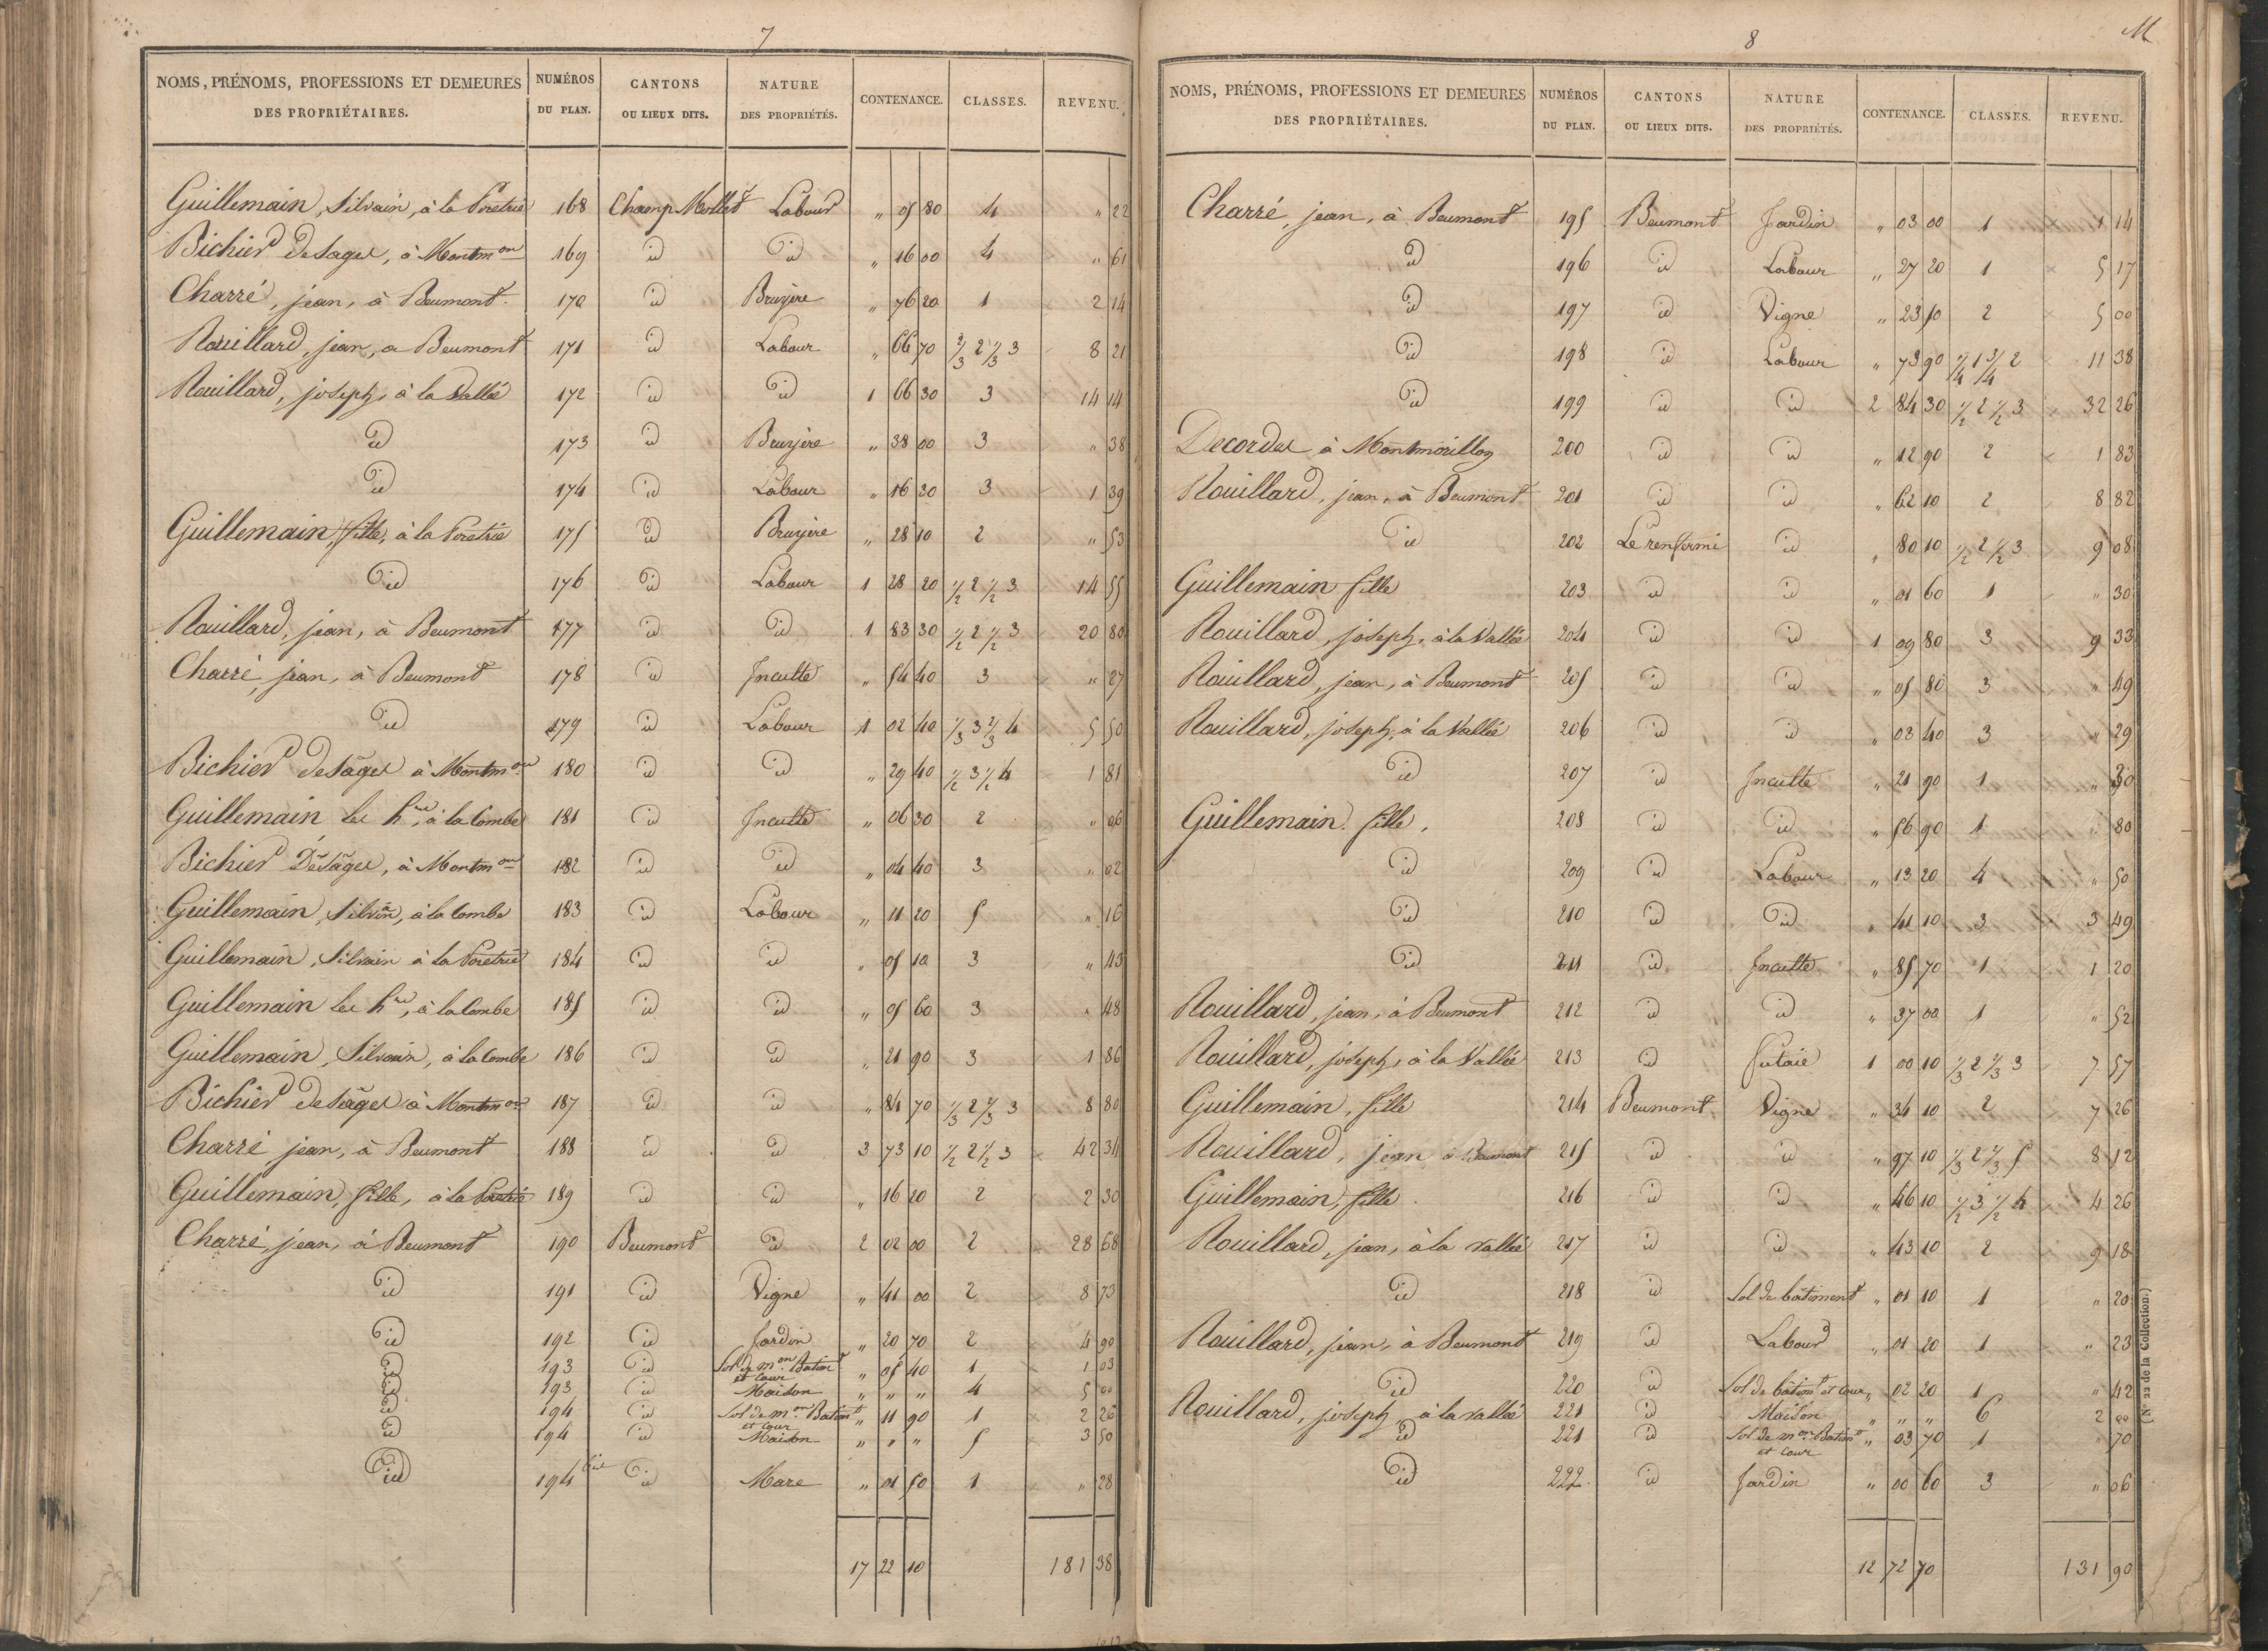 7
NOMS, PRÉNOMS, PROFESSIONS ET DEMEURES DES PROPRIÉTAIRES. NUMÉROS DU PLAN. CANTONS OU LIEUX DITS. NATURE DES PROPRIÉTÉS. CONTENANCE. CLASSES. REVENU.
Guillemain, Silvain, à la Poretrie 168 Champ Mollet Labour " 05 80 4 " 22
Bichier Desages, à Montm.on 169 id id " 16 00 4 " 61
Charré, jean, à Beumont 170 id Bruyère " 76 20 1 2 14
Rouillard, jean, a Beumont 171 id Labour " 66 70 2/3 2 1/3 3 8 21
Rouillard, joseph, à la Vallée 172 id id 1 66 30 3 14 14
id 173 id Bruyère " 38 00 3 " 38
id 174 id Labour " 16 30 3 1 39
Guillemain, fille, à la Poretrie 175 id Bruyère " 28 10 2 " 53
id 176 id Labour 1 28 20 1/2 2 1/2 3 14 55
Rouillard, jean, à Beumont 177 id id 1 83 30 1/2 2 1/2 3 20 80
Charré, jean, à Beumont 178 id Inculte " 54 40 3 " 27
id 179 id Labour 1 02 40 1/3 3 2/3 4 5 50
Bichier Desages à Montm.on 180 id id " 29 40 1/2 3 1/2 4 1 81
Guillemain les h.rs, à la Combe 181 id Inculte " 06 30 2 " 06
Bichier Desages, à Montm.on 182 id id " 04 40 3 " 02
Guillemain, Silvain, à la Combe 183 id Labour " 11 20 5 " 16
Guillemain, Silvain à la Poretrie 184 id id " 05 10 3 " 43
Guillemain les h.rs, à la Combe 185 id id " 05 60 3 " 48
Guillemain, Silvain, à la Combe 186 id id " 21 90 3 1 86
Bichier Desages à Montm.on 187 id id " 84 70 1/3 2 2/3 3 8 80
Charré, jean, à Beumont 188 id id 3 73 10 1/2 2 1/2 3 42 34
Guillemain, fille, à la Poretrie 189 id id " 16 20 2 2 30
Charré, jean, à Beumont 190 Beumont id 2 02 00 2 28 68
id 191 id Vigne " 41 00 2 8 73
id 192 id Jardin " 20 70 2 4 90
id 193 id Sol de m.on Batim.t et cour " 05 40 1 1 03
id 193 id Maison " " " 4 5 00
id 194 id Sol de m.on Batim.t et cour " 11 90 1 2 26
id 194 id Maison " " " 5 3 50
id 194 bis id Mare " 01 50 1 " 28
17 22 10 181 38
8
M
NOMS, PRÉNOMS, PROFESSIONS ET DEMEURES DES PROPRIÉTAIRES. NUMÉROS DU PLAN. CANTONS OU LIEUX DITS. NATURE DES PROPRIÉTÉS. CONTENANCE. CLASSES. REVENU.
Charré, jean, à Beumont 195 Beumont Jardin " 03 00 1 1 14
id 196 id Labour " 27 20 1 5 17
id 197 id Vigne " 23 50 2 5 00
id 198 id Labour " 73 90 1/4 1 3/4 2 11 38
id 199 id id 2 84 30 1/2 2 1/2 3 32 26
Decordes à Montmorillon 200 id id " 12 90 2 1 83
Rouillard, jean, à Beumont 201 id id " 62 10 2 8 82
id 202 Le renfermi id " 80 10 1/2 2 1/2 3 9 08
Guillemain fille 203 id id " 01 60 1 " 30
Rouillard, joseph, à la Vallée 204 id id 1 09 80 3 9 33
Rouillard, jean, à Beumont 205 id id " 05 80 3 " 49
Rouillard, joseph, à la Vallée 206 id id " 03 40 3 " 29
id 207 id Inculte " 21 90 1 " 30
Guillemain fille, 208 id id " 56 90 1 " 80
id 209 id Labour " 13 20 4 " 50
id 210 id id " 41 10 3 3 49
id 211 id Inculte " 85 70 1 1 20
Rouillard, jean, à Beumont 212 id id " 37 00 1 " 52
Rouillard, joseph, à la Vallée 213 id futaie 1 00 10 1/3 2 2/3 3 7 57
Guillemain, fille 214 Beumont Vigne " 34 10 2 7 26
Rouillard, jean à Beumont 215 id id " 97 10 1/3 2 2/3 5 8 12
Guillemain, fille 216 id id " 46 10 1/2 3 1/2 4 4 26
Rouillard, jean, à la vallée 217 id id " 43 10 2 9 18
id 218 id Sol de batiment " 01 10 1 " 20
Rouillard, jean, à Beumont 219 id Labour " 01 20 1 " 23
id 220 id Sol de batim.t et cour " 02 20 1 " 42
Rouillard, joseph, à la vallée 221 id Maison " " " 6 2 00
id 221 id Sol de m.on Batim.t et cour " 03 70 1 " 70
id 222 id Jardin " 00 60 3 " 06
12 72 70 131 90
(N° 22 de la Collection.)